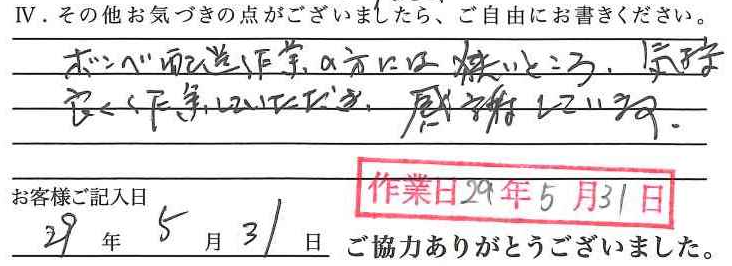 Ⅳ．その他お気づきの点がございましたら、ご自由にお書きください。
ボンベ配送作業の方には狭いところ、気持
良く作業していただき、感謝しています。
お客様ご記入日
作業日29年5月31日
29年5月31日
ご協力ありがとうございました。